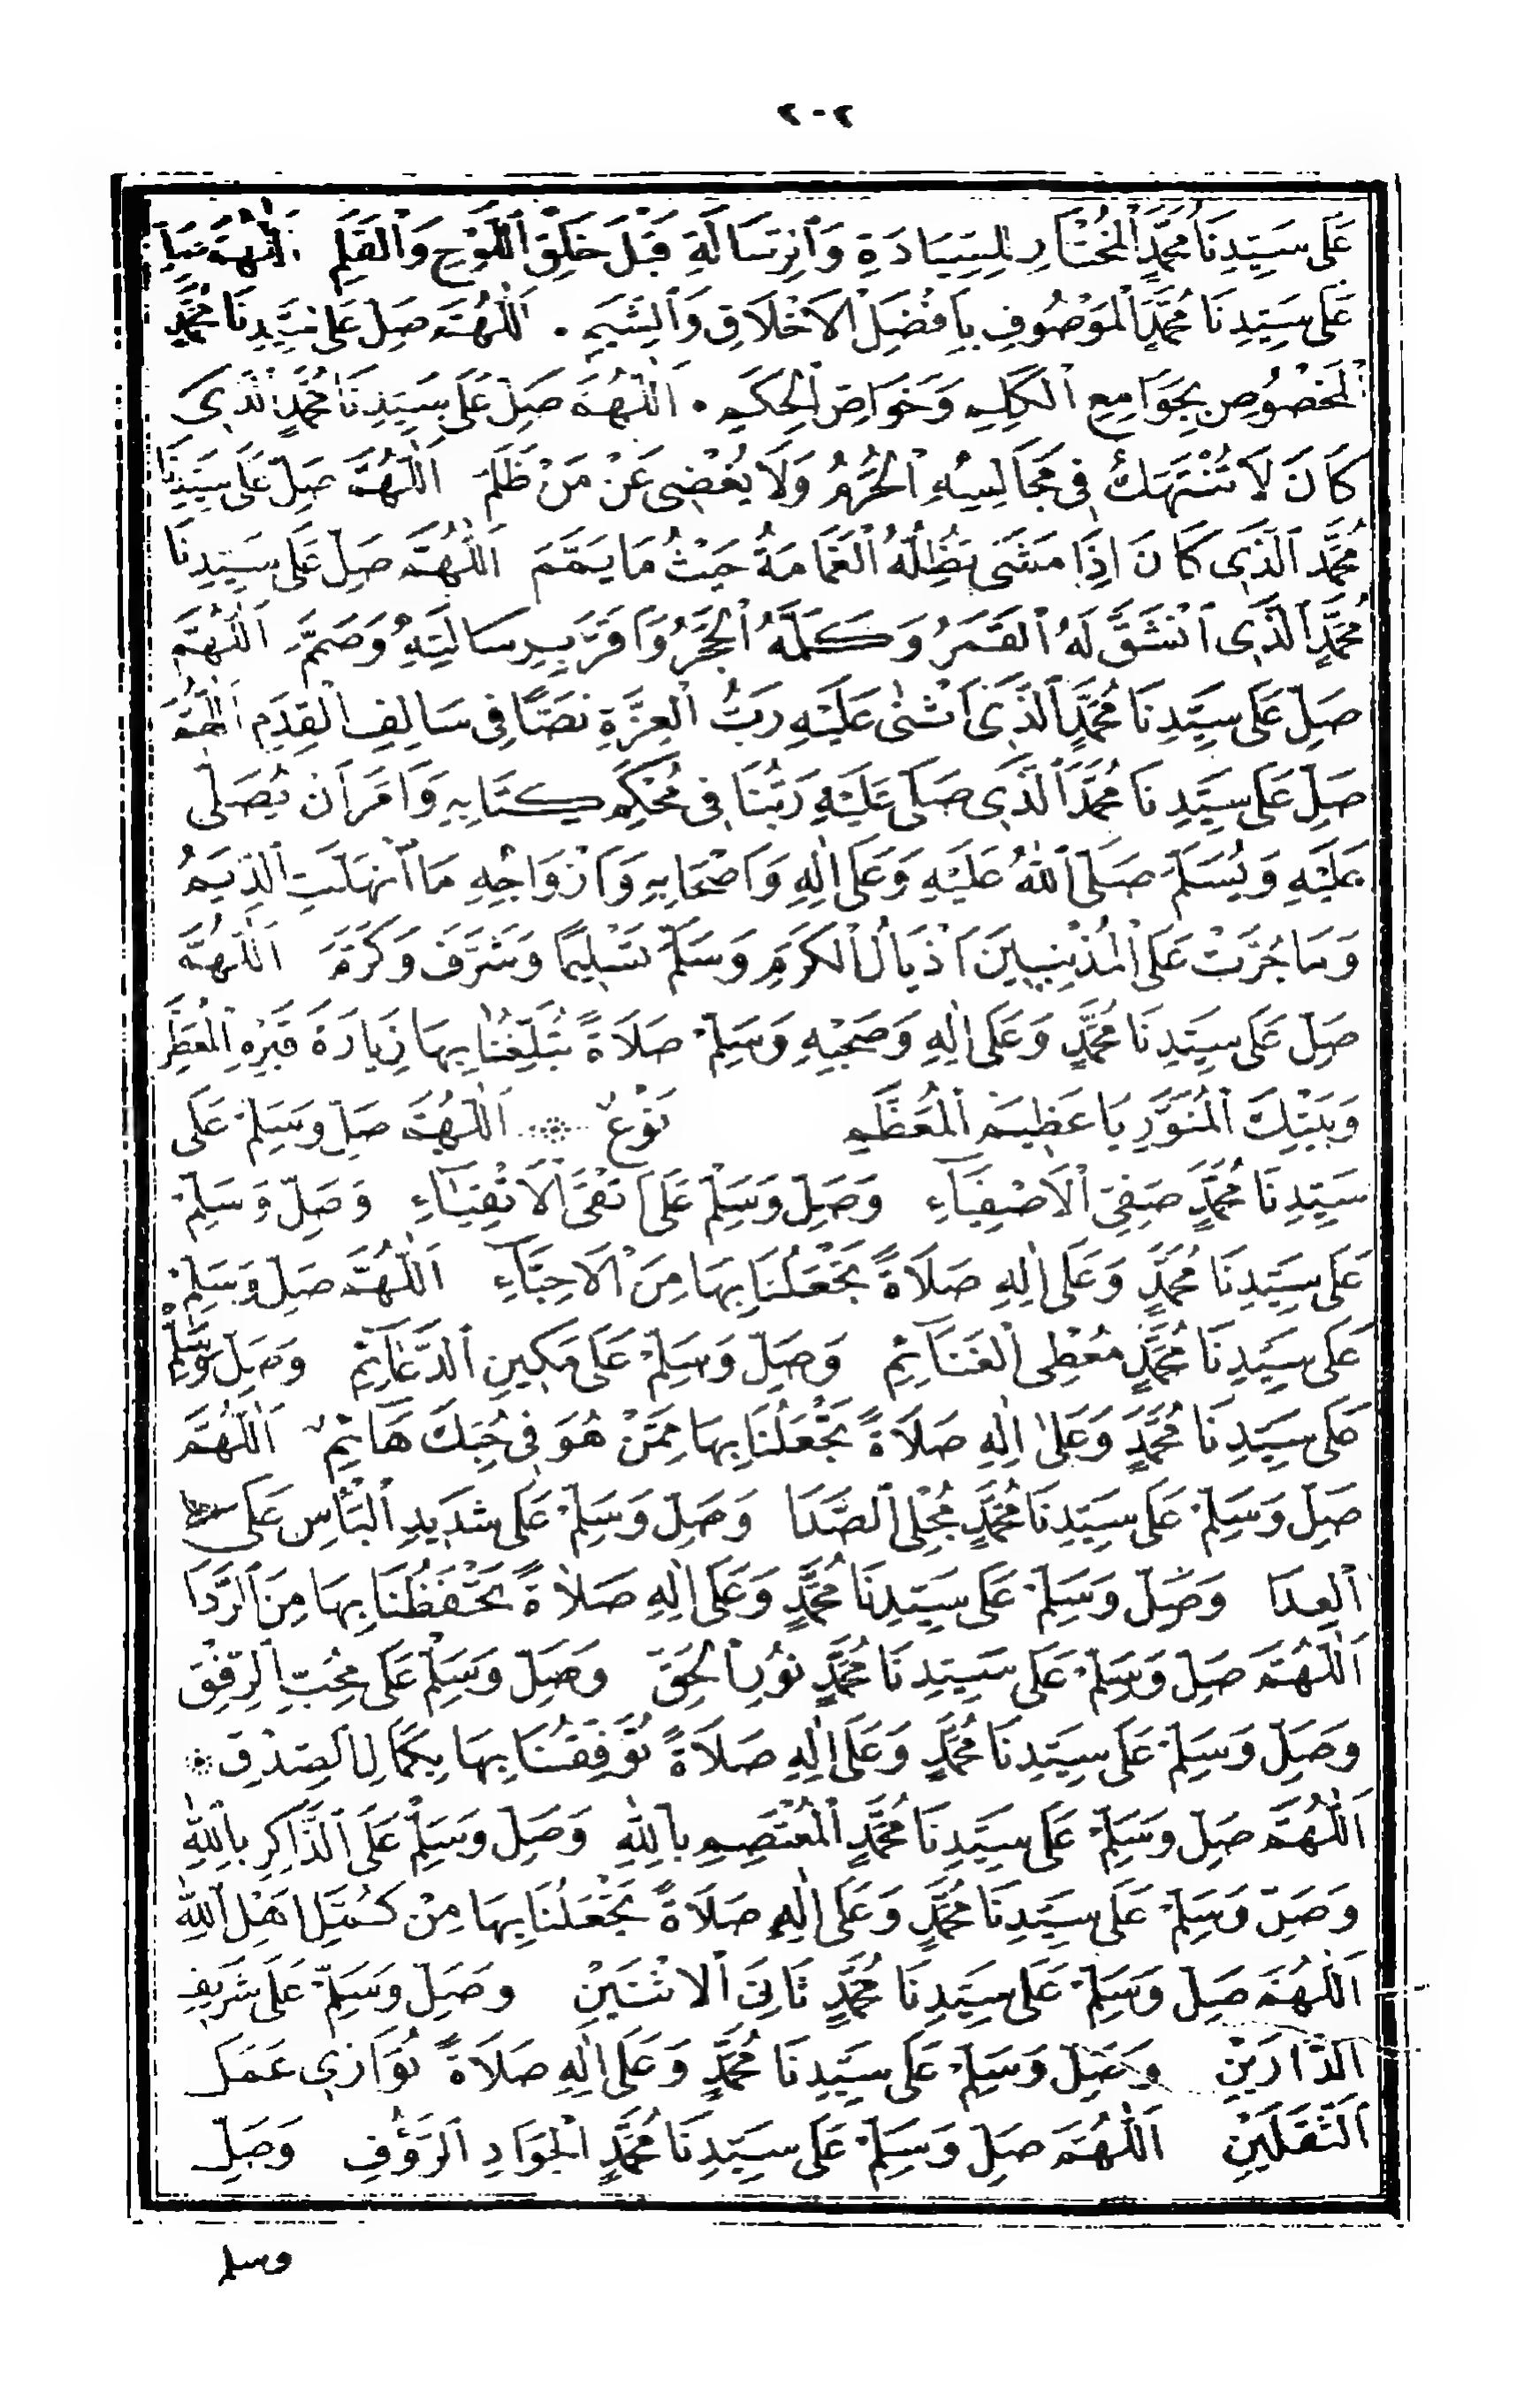 ٢٠٢
عَلَى سَيِّدِنَا مُحَمَّدٍ الْمُخْتَارِ لِلسِّيَادَةِ وَالرِّسَالَةِ قَبْلَ خَلْقِ اللَّوْحِ وَالْقَلَمِ اَللّٰهُمَّ صَلِّ
عَلَى سَيِّدِنَا مُحَمَّدٍ الْمَوْصُوفِ بِاَفْضَلِ الْاَخْلَاقِ وَالشِّيَمِ ٠ اَللّٰهُمَّ صَلِّ عَلَى سَيِّدِنَا مُحَمَّدٍ
الْمَخْصُوصِ بِجَوَامِعِ الْكَلِمِ وَخَوَاصِّ الْحِكَمِ ٠ اَللّٰهُمَّ صَلِّ عَلَى سَيِّدِنَا مُحَمَّدٍ الَّذِى
كَانَ لَا تُنْتَهَكُ فِى مَجَالِسِهِ الْحُرُمُ وَلَا يُغْضِى عَنْ مَنْ ظَلَمَ اَللّٰهُمَّ صَلِّ عَلَى سَيِّدِنَا
مُحَمَّدٍ الَّذِى كَانَ اِذَا مَشَى تُظِلُّهُ الْغَمَامَةُ حَيْثُ مَا يَمَّمَ اَللّٰهُمَّ صَلِّ عَلَى سَيِّدِنَا
مُحَمَّدٍ الَّذِى انْشَقَّ لَهُ الْقَمَرُ وَكَلَّمَهُ الْحَجَرُ وَاَقَرَّ بِرِسَالَتِهِ وَصَمَّمَ اَللّٰهُمَّ
صَلِّ عَلَى سَيِّدِنَا مُحَمَّدٍ الَّذِى اَثْنٰى عَلَيْهِ رَبُّ الْعِزَّةِ نَصًّا فِى سَالِفِ الْقِدَمِ اَللّٰهُمَّ
صَلِّ عَلَى سَيِّدِنَا مُحَمَّدٍ الَّذِى صَلَّى عَلَيْهِ رَبُّنَا فِى مُحْكَمِ كِتَابِهِ وَاَمَرَ اَنْ يُصَلَّى
عَلَيْهِ وَيُسَلَّمَ صَلَّى اللّٰهُ عَلَيْهِ وَعَلَى اٰلِهِ وَاَصْحَابِهِ وَاَزْوَاجِهِ مَا انْهَلَّتِ الدِّيَمُ
وَمَا جُرَّتْ عَلَى الْمُذْنِبِينَ اَذْيَالُ الْكَرَمِ وَسَلَّمَ تَسْلِيمًا وَشَرَّفَ وَكَرَّمَ اَللّٰهُمَّ
صَلِّ عَلَى سَيِّدِنَا مُحَمَّدٍ وَعَلَى اٰلِهِ وَصَحْبِهِ وَسَلِّمْ صَلَاةً تُبَلِّغُنَا بِهَا زِيَارَةَ قَبْرِهِ الْمُعَظَّمِ
وَبَيْتِكَ الْمُنَوَّرِ يَا عَظِيمَ الْمُعَظَّمِ نَوْعٌ اَللّٰهُمَّ صَلِّ وَسَلِّمْ عَلَى
سَيِّدِنَا مُحَمَّدٍ صَفِىِّ الْاَصْفِيَاءِ وَصَلِّ وَسَلِّمْ عَلَى اَتْقَى الْاَتْقِيَاءِ وَصَلِّ وَسَلِّمْ
عَلَى سَيِّدِنَا مُحَمَّدٍ وَعَلَى اٰلِهِ صَلَاةً تَجْعَلُنَا بِهَا مِنَ الْاَحِبَّاءِ اَللّٰهُمَّ صَلِّ وَسَلِّمْ
عَلَى سَيِّدِنَا مُحَمَّدٍ مُعْطِى الْغَنَائِمِ وَصَلِّ وَسَلِّمْ عَلَى مَكِينِ الدَّعَائِمِ وَصَلِّ وَسَلِّمْ
عَلَى سَيِّدِنَا مُحَمَّدٍ وَعَلَى اٰلِهِ صَلَاةً تَجْعَلُنَا بِهَا مِمَّنْ هُوَ فِى حُبِّكَ هَائِمٌ اَللّٰهُمَّ
صَلِّ وَسَلِّمْ عَلَى سَيِّدِنَا مُحَمَّدٍ مُجْلِى الصَّدَا وَصَلِّ وَسَلِّمْ عَلَى شَدِيدِ الْبَأْسِ عَلَى
الْعِدَا وَصَلِّ وَسَلِّمْ عَلَى سَيِّدِنَا مُحَمَّدٍ وَعَلَى اٰلِهِ صَلَاةً تَحْفَظُنَا بِهَا مِنَ الرَّدَا
اَللّٰهُمَّ صَلِّ وَسَلِّمْ عَلَى سَيِّدِنَا مُحَمَّدٍ نُورِ الْحَقِّ وَصَلِّ وَسَلِّمْ عَلَى مُحِبِّ الرِّفْقِ
وَصَلِّ وَسَلِّمْ عَلَى سَيِّدِنَا مُحَمَّدٍ وَعَلَى اٰلِهِ صَلَاةً تُوَفِّقُنَا بِهَا بِكَمَالِ الصِّدْقِ
اَللّٰهُمَّ صَلِّ وَسَلِّمْ عَلَى سَيِّدِنَا مُحَمَّدٍ الْمُعْتَصِمِ بِاللّٰهِ وَصَلِّ وَسَلِّمْ عَلَى الذَّاكِرِ بِاللّٰهِ
وَصَلِّ وَسَلِّمْ عَلَى سَيِّدِنَا مُحَمَّدٍ وَعَلَى اٰلِهِ صَلَاةً تَجْعَلُنَا بِهَا مِنْ كُمَّلِ اَهْلِ اللّٰهِ
اَللّٰهُمَّ صَلِّ وَسَلِّمْ عَلَى سَيِّدِنَا مُحَمَّدٍ ثَانِىَ الْاثْنَيْنِ وَصَلِّ وَسَلِّمْ عَلَى شَرِيفِ
الدَّارَيْنِ وَصَلِّ وَسَلِّمْ عَلَى سَيِّدِنَا مُحَمَّدٍ وَعَلَى اٰلِهِ صَلَاةً تُوَازِى عَمَلَ
الثَّقَلَيْنِ اَللّٰهُمَّ صَلِّ وَسَلِّمْ عَلَى سَيِّدِنَا مُحَمَّدٍ الْجَوَادِ الرَّؤُفِ وَصَلِّ
وسلم